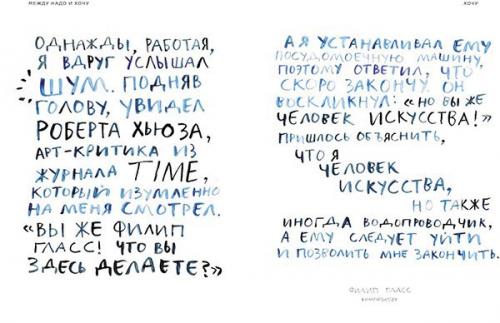 МЕЖДУ НАДО И ХОЧУ
ОДНАЖДЫ, РАБОТАЯ,
Я ВДРУГ УСЛЫШАЛ
ШУМ. ПОДНЯВ
ГОЛОВУ, УВИДЕЛ
РОБЕРТА ХЬЮЗА,
АРТ-КРИТИКА ИЗ
ЖУРНАЛА TIME,
КОТОРЫЙ ИЗУМЛЕННО
НА МЕНЯ СМОТРЕЛ.
«ВЫ ЖЕ ФИЛИП
ГЛАСС! ЧТО ВЫ
ЗДЕСЬ ДЕЛАЕТЕ?»
ХОЧУ
А Я УСТАНАВЛИВАЛ ЕМУ
ПОСУДОМОЕЧНУЮ МАШИНУ,
ПОЭТОМУ ОТВЕТИЛ, ЧТО
СКОРО ЗАКОНЧУ. ОН
ВОСКЛИКНУЛ: «НО ВЫ ЖЕ
ЧЕЛОВЕК ИСКУССТВА!»
ПРИШЛОСЬ ОБЪЯСНИТЬ,
ЧТО Я
ЧЕЛОВЕК
ИСКУССТВА,
НО ТАКЖЕ
ИНОГДА ВОДОПРОВОДЧИК,
А ЕМУ СЛЕДУЕТ УЙТИ
И ПОЗВОЛИТЬ МНЕ ЗАКОНЧИТЬ.
ФИЛИП ГЛАСС
КОМПОЗИТОР